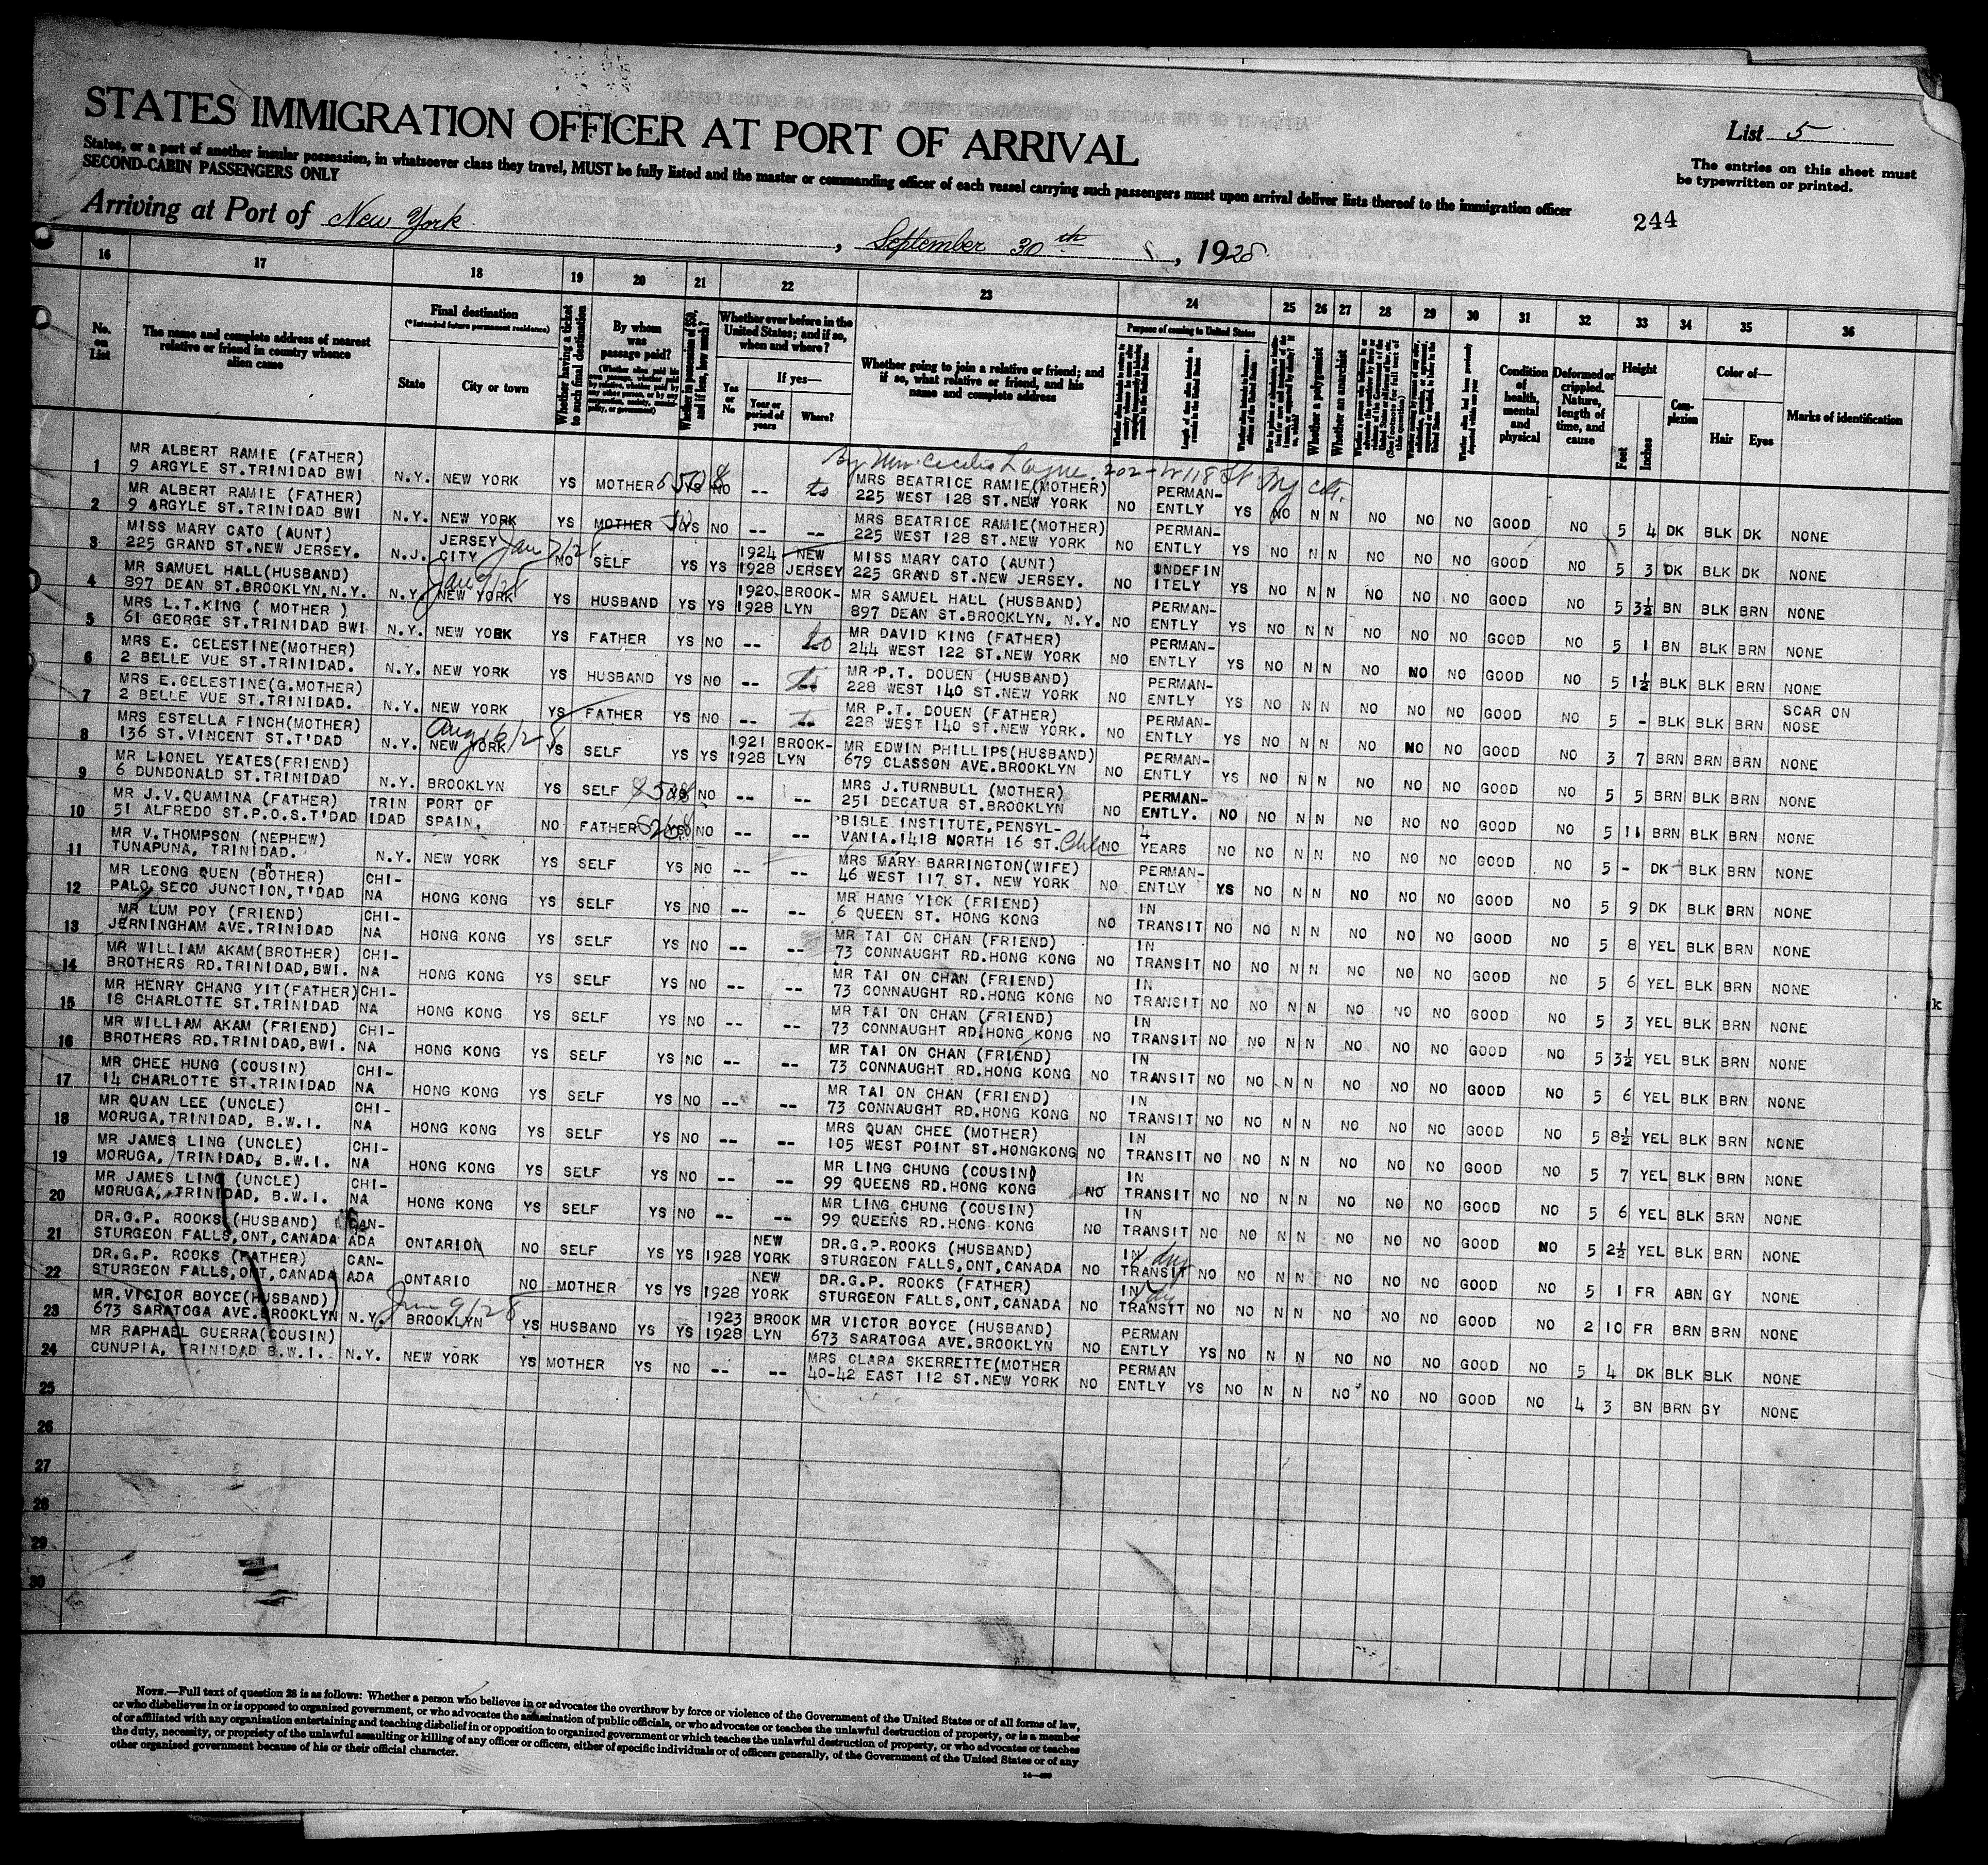 STATES IMMIGRATION OFFICER AT PORT OF ARRIVAL
List 5
States, or a part of another insular possession, in whatsoever class they travel, MUST be fully listed and the master or commanding officer of each vessel carrying such passengers must upon arrival deliver lists thereof to the immigration officer
SECOND-CABIN PASSENGERS ONLY
The entries on this sheet must
be typewritten or printed.
244
Arriving at Port of New York, September 30th, 1928
16 17 18 19 20 21 22 23 24 25 26 27 28 29 30 31 32 33 34 35 36
No. on List
The name and complete address of nearest relative or friend in country whence alien came
Final destination
(*Intended future permanent residence)
State
City or town
Whether having a ticket to such final destination
By whom was passage paid?
Whether in possession of $50, and if less, how much?
Whether ever before in the United States; and if so, when and where?
Yes or No
If yes—
Year or period of years
Where?
Whether going to join a relative or friend; and if so, what relative or friend, and his name and complete address
Purpose of coming to United States
Whether a polygamist
Whether an anarchist
Condition of health, mental and physical
Deformed or crippled. Nature, length of time, and cause
Height
Feet
Inches
Complexion
Color of—
Hair
Eyes
Marks of identification
202-W 118 St
1 MR ALBERT RAMIE (FATHER) 9 ARGYLE ST.TRINIDAD BWI N.Y. NEW YORK YS MOTHER YS NO -- MRS BEATRICE RAMIE(MOTHER) 225 WEST 128 ST.NEW YORK NO PERMAN-ENTLY YS NO N N NO NO NO GOOD NO 5 4 DK BLK DK NONE
2 MR ALBERT RAMIE (FATHER) 9 ARGYLE ST.TRINIDAD BWI N.Y. NEW YORK YS MOTHER YS NO -- -- MRS BEATRICE RAMIE(MOTHER) 225 WEST 128 ST.NEW YORK NO PERMAN-ENTLY YS NO N N NO NO NO GOOD NO 5 3 DK BLK DK NONE
3 MISS MARY CATO (AUNT) 225 GRAND ST.NEW JERSEY. N.J. JERSEY CITY Jan 7/28 NO SELF YS YS 1924 1928 NEW JERSEY MISS MARY CATO (AUNT) 225 GRAND ST.NEW JERSEY. NO UNDEFIN ITELY YS NO N N NO NO NO GOOD NO 5 3½ BN BLK BRN NONE
4 MR SAMUEL HALL(HUSBAND) 897 DEAN ST.BROOKLYN,N.Y. N.Y. NEW YORK YS HUSBAND YS YS 1920 1928 BROOK-LYN MR SAMUEL HALL (HUSBAND) 897 DEAN ST.BROOKLYN, N.Y. NO PERMAN-ENTLY YS NO N N NO NO NO GOOD NO 5 1 BN BLK BRN NONE
5 MRS L.T.KING ( MOTHER ) 61 GEORGE ST.TRINIDAD BWI N.Y. NEW YORK YS FATHER YS NO -- MR DAVID KING (FATHER) 244 WEST 122 ST.NEW YORK NO PERMAN-ENTLY YS NO N N NO NO NO GOOD NO 5 1½ BLK BLK BRN NONE
6 MRS E. CELESTINE(MOTHER) 2 BELLE VUE ST.TRINIDAD. N.Y. NEW YORK YS HUSBAND YS NO -- MR P.T. DOUEN (HUSBAND) 228 WEST 140 ST.NEW YORK NO PERMAN-ENTLY YS NO N N NO NO NO GOOD NO 5 - BLK BLK BRN SCAR ON NOSE
7 MRS E.CELESTINE(G.MOTHER) 2 BELLE VUE ST.TRINIDAD. N.Y. NEW YORK YS FATHER YS NO -- MR P.T. DOUEN (FATHER) 228 WEST 140 ST.NEW YORK. NO PERMAN-ENTLY YS NO N N NO NO NO GOOD NO 3 7 BRN BRN BRN NONE
8 MRS ESTELLA FINCH(MOTHER) 136 ST.VINCENT ST.T'DAD N.Y. NEW YORK Aug 6/28 YS SELF YS YS 1921 1928 BROOK-LYN MR EDWIN PHILLIPS(HUSBAND) 679 CLASSON AVE.BROOKLYN NO PERMAN-ENTLY YS NO N N NO NO NO GOOD NO 5 5 BRN BLK BRN NONE
9 MR LIONEL YEATES(FRIEND) 6 DUNDONALD ST.TRINIDAD N.Y. BROOKLYN YS SELF NO -- -- MRS J.TURNBULL (MOTHER) 251 DECATUR ST.BROOKLYN NO PERMAN-ENTLY. NO NO N N NO NO NO GOOD NO 5 11 BRN BLK BRN NONE
10 MR J.V.QUAMINA (FATHER) 51 ALFREDO ST.P.O.S.T'DAD TRIN IDAD PORT OF SPAIN, NO FATHER NO -- -- BIBLE INSTITUTE,PENSYL-VANIA.1418 NORTH 16 ST. NO 4 YEARS NO NO N N NO NO NO GOOD NO 5 - DK BLK BRN NONE
11 MR V.THOMPSON (NEPHEW) TUNAPUNA, TRINIDAD. N.Y. NEW YORK YS SELF YS NO -- -- MRS MARY BARRINGTON(WIFE) 46 WEST 117 ST. NEW YORK NO PERMAN-ENTLY YS NO N N NO NO NO GOOD NO 5 9 DK BLK BRN NONE
12 MR LEONG QUEN (BOTHER) PALO SECO JUNCTION,T'DAD CHI-NA HONG KONG YS SELF YS NO -- -- MR HANG YICK (FRIEND) 6 QUEEN ST. HONG KONG NO IN TRANSIT NO NO N N NO NO NO GOOD NO 5 8 YEL BLK BRN NONE
13 MR LUM POY (FRIEND) JERNINGHAM AVE.TRINIDAD CHI-NA HONG KONG YS SELF YS NO -- -- MR TAI ON CHAN (FRIEND) 73 CONNAUGHT RD.HONG KONG NO IN TRANSIT NO NO N N NO NO NO GOOD NO 5 6 YEL BLK BRN NONE
14 MR WILLIAM AKAM(BROTHER) BROTHERS RD.TRINIDAD,BWI. CHI-NA HONG KONG YS SELF YS NO -- -- MR TAI ON CHAN (FRIEND) 73 CONNAUGHT RD.HONG KONG NO IN TRANSIT NO NO N N NO NO NO GOOD NO 5 3 YEL BLK BRN NONE
15 MR HENRY CHANG YIT(FATHER) 18 CHARLOTTE ST.TRINIDAD CHI-NA HONG KONG YS SELF YS NO -- -- MR TAI ON CHAN (FRIEND) 73 CONNAUGHT RD.HONG KONG NO IN TRANSIT NO NO N N NO NO NO GOOD NO 5 3½ YEL BLK BRN NONE
16 MR WILLIAM AKAM (FRIEND) BROTHERS RD.TRINIDAD,BWI. CHI-NA HONG KONG YS SELF YS NO -- -- MR TAI ON CHAN (FRIEND) 73 CONNAUGHT RD.HONG KONG NO IN TRANSIT NO NO N N NO NO NO GOOD NO 5 6 YEL BLK BRN NONE
17 MR CHEE HUNG (COUSIN) 14 CHARLOTTE ST.TRINIDAD CHI-NA HONG KONG YS SELF YS NO -- -- MR TAI ON CHAN (FRIEND) 73 CONNAUGHT RD.HONG KONG NO IN TRANSIT NO NO N N NO NO NO GOOD NO 5 8½ YEL BLK BRN NONE
18 MR QUAN LEE (UNCLE) MORUGA,TRINIDAD, B.W.I. CHI-NA HONG KONG YS SELF YS NO -- -- MRS QUAN CHEE (MOTHER) 105 WEST POINT ST.HONGKONG NO IN TRANSIT NO NO N N NO NO NO GOOD NO 5 7 YEL BLK BRN NONE
19 MR JAMES LING (UNCLE) MORUGA, TRINIDAD, B.W.I. CHI-NA HONG KONG YS SELF YS NO -- -- MR LING CHUNG (COUSIN) 99 QUEENS RD.HONG KONG NO IN TRANSIT NO NO N N NO NO NO GOOD NO 5 6 YEL BLK BRN NONE
20 MR JAMES LING (UNCLE) MORUGA, TRINIDAD, B.W.I. CHI-NA HONG KONG YS SELF YS NO -- -- MR LING CHUNG (COUSIN) 99 QUEENS RD.HONG KONG NO IN TRANSIT NO NO N N NO NO NO GOOD NO 5 2½ YEL BLK BRN NONE
21 DR.G.P. ROOKS (HUSBAND) STURGEON FALLS,ONT,CANADA CAN-ADA ONTARIO NO SELF YS YS 1928 NEW YORK DR.G.P.ROOKS (HUSBAND) STURGEON FALLS,ONT,CANADA NO IN TRANSIT NO NO N N NO NO NO GOOD NO 5 1 FR ABN GY NONE
22 DR.G.P. ROOKS (FATHER) STURGEON FALLS,ONT,CANADA CAN-ADA ONTARIO NO MOTHER YS YS 1928 NEW YORK DR.G.P. ROOKS (FATHER) STURGEON FALLS,ONT,CANADA NO IN TRANSIT NO NO N N NO NO NO GOOD NO 2 10 FR BRN BRN NONE
23 MR.VICTOR BOYCE(HUSBAND) 673 SARATOGA AVE.BROOKLYN N.Y. BROOKLYN YS HUSBAND YS YS 1923 1928 BROOK LYN MR VICTOR BOYCE (HUSBAND) 673 SARATOGA AVE.BROOKLYN NO PERMAN ENTLY YS NO N N NO NO NO GOOD NO 5 4 DK BLK BLK NONE
24 MR RAPHAEL GUERRA(COUSIN) CUNUPIA, TRINIDAD B.W.I. N.Y. NEW YORK YS MOTHER YS NO -- -- MRS CLARA SKERRETTE(MOTHER 40-42 EAST 112 ST.NEW YORK NO PERMAN ENTLY YS NO N N NO NO NO GOOD NO 4 3 BN BRN GY NONE
25
26
27
28
29
30
NOTE.—Full text of question 28 is as follows: Whether a person who believes in or advocates the overthrow by force or violence of the Government of the United States or of all forms of law,
or who disbelieves in or is opposed to organized government, or who advocates the assassination of public officials, or who advocates or teaches the unlawful destruction of property, or is a member
of or affiliated with any organization entertaining and teaching disbelief in or opposition to organized government or which teaches the unlawful destruction of property, or who advocates or teaches
the duty, necessity, or propriety of the unlawful assaulting or killing of any officer or officers, either of specific individuals or of officers generally, of the Government of the United States or of any
other organized government because of his or their official character.